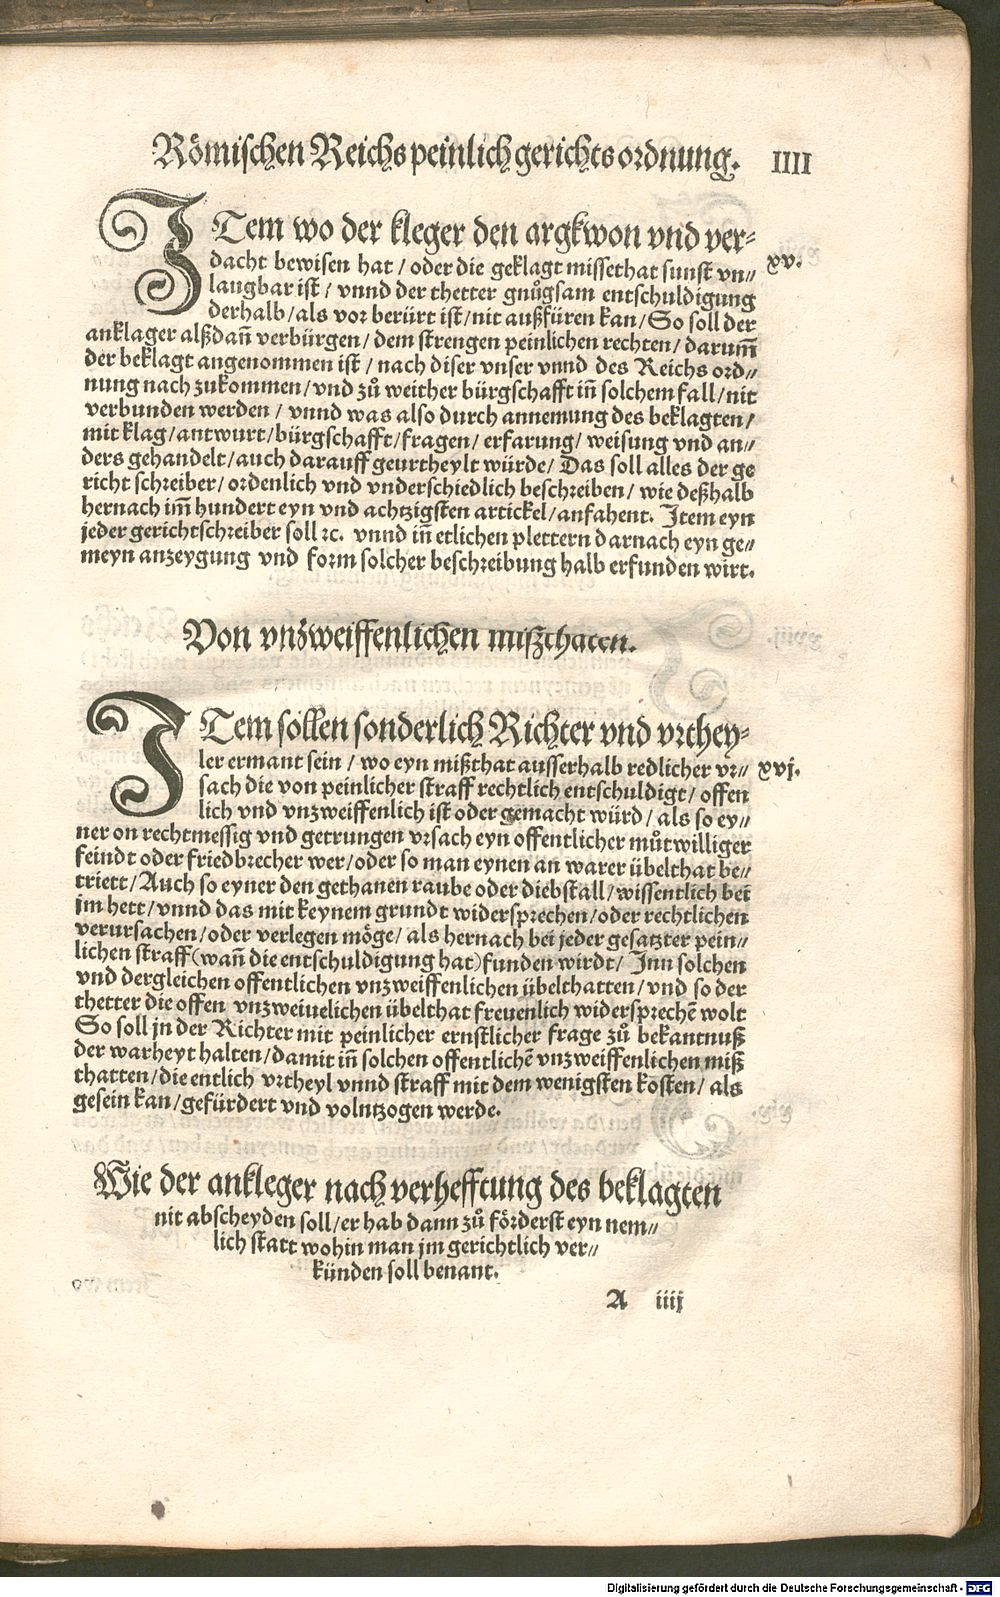 Römischen Reichs peinlich gerichts ordnung. IIII
ITem wo der kleger den argkwon vnd ver⸗
dacht bewisen hat / oder die geklagt missethat sunst vn⸗ xv.
laugbar ist / vnnd der thetter gnůgsam entschuldigung
derhalb / als vor berürt ist / nit außfüren kan / So soll der
anklager alßdañ verbürgen / dem strengen peinlichen rechten / darum̃
der beklagt angenommen ist / nach diser vnser vnnd des Reichs ord⸗
nung nach zukommen / vnd zů weither bürgschafft iñ solchem fall / nit
verbunden werden / vnnd was also durch annemung des beklagten /
mit klag / antwurt / bürgschafft / fragen / erfarung / weisung vnd an⸗
ders gehandelt / auch darauff geurtheylt würde / Das soll alles der ge
richt schreiber / ordenlich vnd vnderschiedlich beschreiben / wie deßhalb
hernach im̃ hundert eyn vnd achtzigsten artickel / anfahent. Item eyn
jeder gerichtschreiber soll ꝛc. vnnd iñ etlichen plettern darnach eyn ge⸗
meyn anzeygung vnd form solcher beschreibung halb erfunden wirt.
Von vnzweiffenlichen mißthaten.
ITem söllen sonderlich Richter vnd vrthey⸗
ler ermant sein / wo eyn mißthat ausserhalb redlicher vr⸗ xvj.
sach die von peinlicher straff rechtlich entschuldigt / offen
lich vnd vnzweiffenlich ist oder gemacht würd / als so ey⸗
ner on rechtmessig vnd getrungen vrsach eyn offentlicher můtwilliger
feindt oder friedbrecher wer / oder so man eynen an warer übelthat be⸗
triett / Auch so eyner den gethanen raube oder diebstall / wissentlich bei
jm hett / vnnd das mit keynem grundt widersprechen / oder rechtlichen
verursachen / oder verlegen möge / als hernach bei jeder gesatzter pein⸗
lichen straff (wañ die entschuldigung hat) funden wirdt / Inn solchen
vnd dergleichen offentlichen vnzweiffenlichen übelthatten / vnd so der
thetter die offen vnzweiuelichen übelthat freuenlich widersprechẽ wolt
So soll jn der Richter mit peinlicher ernstlicher frage zů bekantnuß
der warheyt halten / damit iñ solchen offentlichẽ vnzweiffenlichen miß
thatten / die entlich vrtheyl vnnd straff mit dem wenigsten kosten / als
gesein kan / gefürdert vnd volntzogen werde.
Wie der ankleger nach verhefftung des beklagten
nit abscheyden soll / er hab dann zů förderst eyn nem⸗
lich statt wohin man jm gerichtlich ver⸗
künden soll benant.
A iiij
Digitalisierung gefördert durch die Deutsche Forschungsgemeinschaft - DFG